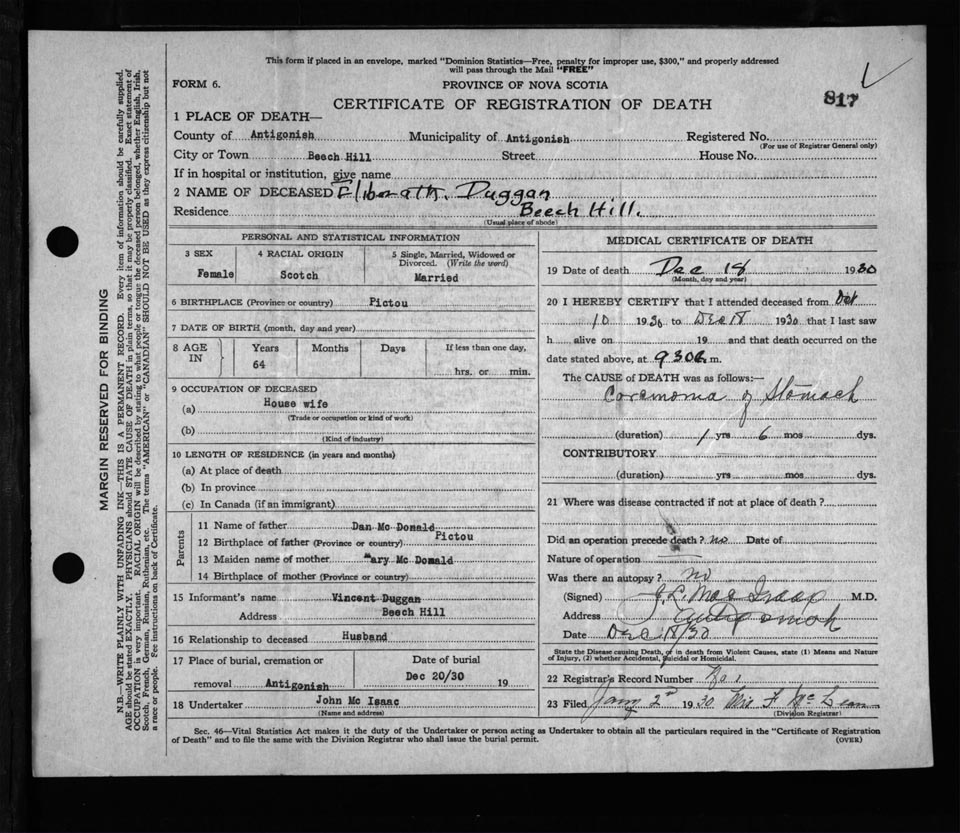 This form if placed in an envelope, marked "Dominion Statistics—Free, penalty for improper use, $300," and properly addressed
will pass through the Mail "FREE"
FORM 6.
PROVINCE OF NOVA SCOTIA
CERTIFICATE OF REGISTRATION OF DEATH
817
1 PLACE OF DEATH—
County of Antigonish Municipality of Antigonish Registered No.
(For use of Registrar General only)
City or Town Beech Hill Street House No.
If in hospital or institution, give name
2 NAME OF DECEASED Elibeath. Duggan
Residence Beech Hill.
(Usual place of abode)
PERSONAL AND STATISTICAL INFORMATION
3 SEX 4 RACIAL ORIGIN 5 Single, Married, Widowed or
Divorced. (Write the word)
Female Scotch Married
6 BIRTHPLACE (Province or country) Pictou
7 DATE OF BIRTH (month, day and year)
8 AGE IN Years Months Days If less than one day,
64 hrs. or min.
9 OCCUPATION OF DECEASED
(a) House wife
(Trade or occupation or kind of work)
(b)
(Kind of industry)
10 LENGTH OF RESIDENCE (in years and months)
(a) At place of death
(b) In province
(c) In Canada (if an immigrant)
Parents
11 Name of father Dan Mc Donald
12 Birthplace of father (Province or country) Pictou
13 Maiden name of mother Mary Mc Donald
14 Birthplace of mother (Province or country)
15 Informant's name Vincent Duggan
Address Beech Hill
16 Relationship to deceased Husband
17 Place of burial, cremation or Date of burial
removal Antigonish Dec 20/30 19
18 Undertaker John Mc Isaac
(Name and address)
MEDICAL CERTIFICATE OF DEATH
19 Date of death Dec 18 1930
(Month, day and year)
20 I HEREBY CERTIFY that I attended deceased from Oct
10 1930 to Dec 18 1930 that I last saw
h alive on 19 and that death occurred on the
date stated above, at 930 a m.
The CAUSE of DEATH was as follows:—
Corcmoma of Stomach
(duration) 1 yrs 6 mos dys.
CONTRIBUTORY
(duration) yrs mos dys.
21 Where was disease contracted if not at place of death?
Did an operation precede death? no Date of
Nature of operation
Was there an autopsy? no
(Signed) J. L. MacIsaac M.D.
Address Antigonish
Date Dec 18/30
State the Disease causing Death, or in death from Violent Causes, state (1) Means and Nature
of Injury, (2) whether Accidental, Suicidal or Homicidal.
22 Registrar's Record Number No 1
23 Filed Jany 2d 1930 Mrs F McLean
(Division Registrar)
Sec. 46—Vital Statistics Act makes it the duty of the Undertaker or person acting as Undertaker to obtain all the particulars required in the "Certificate of Registration
of Death" and to file the same with the Division Registrar who shall issue the burial permit.
(OVER)
MARGIN RESERVED FOR BINDING
N.B.—WRITE PLAINLY WITH UNFADING INK—THIS IS A PERMANENT RECORD. Every item of information should be carefully supplied.
AGE should be stated EXACTLY. PHYSICIANS should STATE CAUSE OF DEATH in plain terms, so that it may be properly classified. Exact statement of
OCCUPATION is very important. RACIAL ORIGIN will be described by stating to what people or tongue the deceased person belonged, whether English, Irish,
Scotch, French, German, Russian, Ruthenian, etc. The terms "AMERICAN" or "CANADIAN" SHOULD NOT BE USED as they express citizenship but not
a race or people. See instructions on back of Certificate.